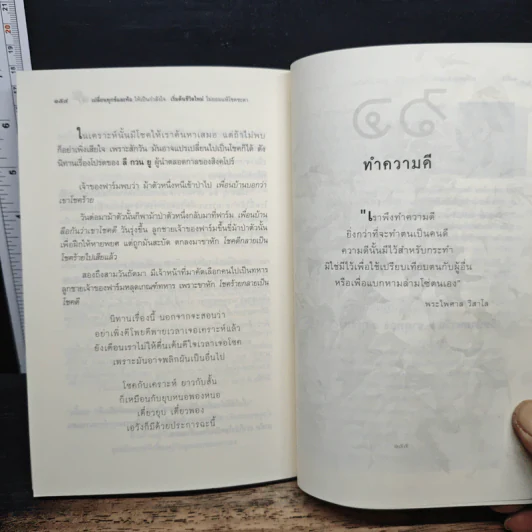 ๑๕๗ เปลี่ยนทุกข์และภัย ให้เป็นกำลังใจ เริ่มต้นชีวิตใหม่
ในเคราะห์นั้นมีโชคให้เราค้นหาเสมอ แต่ถ้าไม่พบ
ก็อย่าพึ่งเสียใจ เพราะสักวัน มันอาจแปรเปลี่ยนไปเป็นโชคก็ได้ ดัง
นิทานเรื่องโปรดของ ลี กวน ยู ผู้นำตลอดกาลของสิงคโปร์
เจ้าของฟาร์มพบว่า ม้าตัวหนึ่งหนีเข้าป่าไป เพื่อนบ้านบอกว่า
เขาโชคร้าย
วันต่อมาม้าตัวนั้นก็พาม้าป่าตัวหนึ่งกลับมาที่ฟาร์ม เพื่อนบ้าน
ลือกันว่าเขาโชคดี วันรุ่งขึ้น ลูกชายเจ้าของฟาร์มขึ้นขี่ม้าป่าตัวนั้น
เพื่อฝึกให้หายพยศ แต่ถูกมันสะบัด ตกลงมาขาหัก โชคดีกลายเป็น
โชคร้ายไปเสียแล้ว
สองถึงสามวันถัดมา มีเจ้าหน้าที่มาคัดเลือกคนไปเป็นทหาร
ลูกชายเจ้าของฟาร์มหลุดเกณฑ์ทหาร เพราะขาหัก โชคร้ายกลายเป็น
โชคดี
นิทานเรื่องนี้ นอกจากจะสอนว่า
อย่าเพิ่งตีโพยตีพายเวลาเจอเคราะห์แล้ว
ยังเตือนเราไม่ให้ตื่นเต้นดีใจเวลาเจอโชค
เพราะมันอาจพลิกผันเป็นอื่นไป
โชคกับเคราะห์ ยาวกับสั้น
ก็เหมือนกับยุบหนอพองหนอ
เดี๋ยวยุบ เดี๋ยวพอง
เอวังก็มีด้วยประการฉะนี้
ทำความดี
"เราพึงทำความดี
ยิ่งกว่าที่จะทำตนเป็นคนดี
ความดีนั้นมีไว้สำหรับกระทำ
มิใช่มีไว้เพื่อใช้เปรียบเทียบตนกับผู้อื่น
หรือเพื่อแบกหามล่ามโซ่ตนเอง"
พระไพศาล วิสาโล